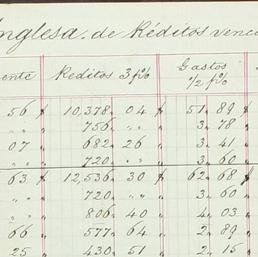 Inglesa, de Réditos venc
ente Reditos 3 p% Gastos ½ p%
56 10,378 04 51 89
" 756 " 3 78
07 682 26 3 41
" 720 " 3 60
63 12,536 30 62 68
" 720 " 3 60
" 806 40 4 03
66 577 64 2 89
25 430 51 2 15